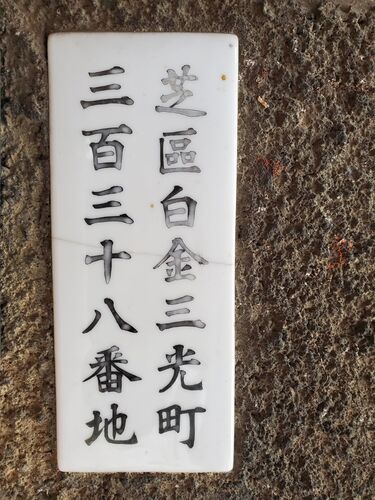 芝區白金三光町
三百三十八番地